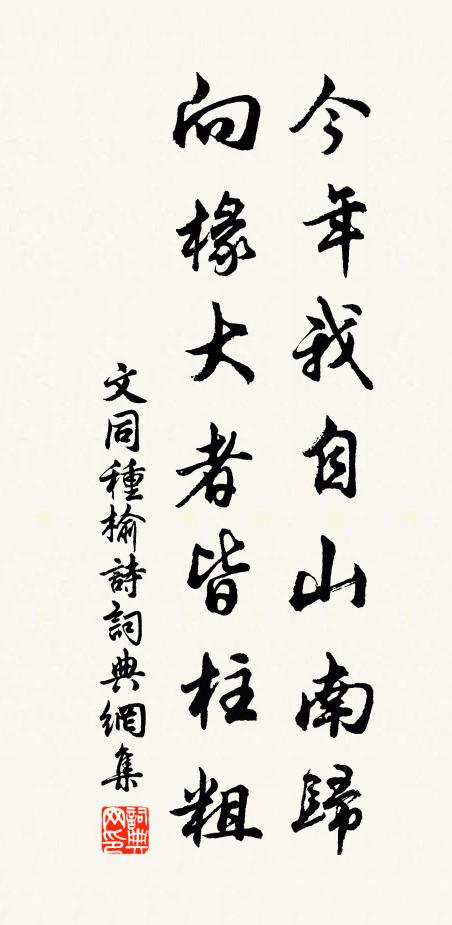 今年我自山南歸
向椽大者皆柱粗
文同種榆詩詞典網集
詞典網印